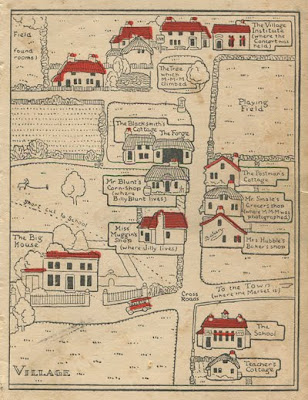 Field
(found
rooms)
The Village
Institute
(where the
Concert was
held)
The Tree
which
M-M-M
Climbed
Playing
Field
The Blacksmith's
Cottage
The Forge
The Postman's
Cottage
Mr Blunt's
Corn-Shop
(where
Billy Blunt lives)
Grocer's Shop
(where M.M.M was
photographed)
Short cut to School
Miss
Muggins'
Shop
(where Jilly lives)
Mrs Hubble's
Baker's Shop
The Big
House
To the Town
(where the Market is)
Cross
Roads
The
School
Teacher's
Cottage
VILLAGE